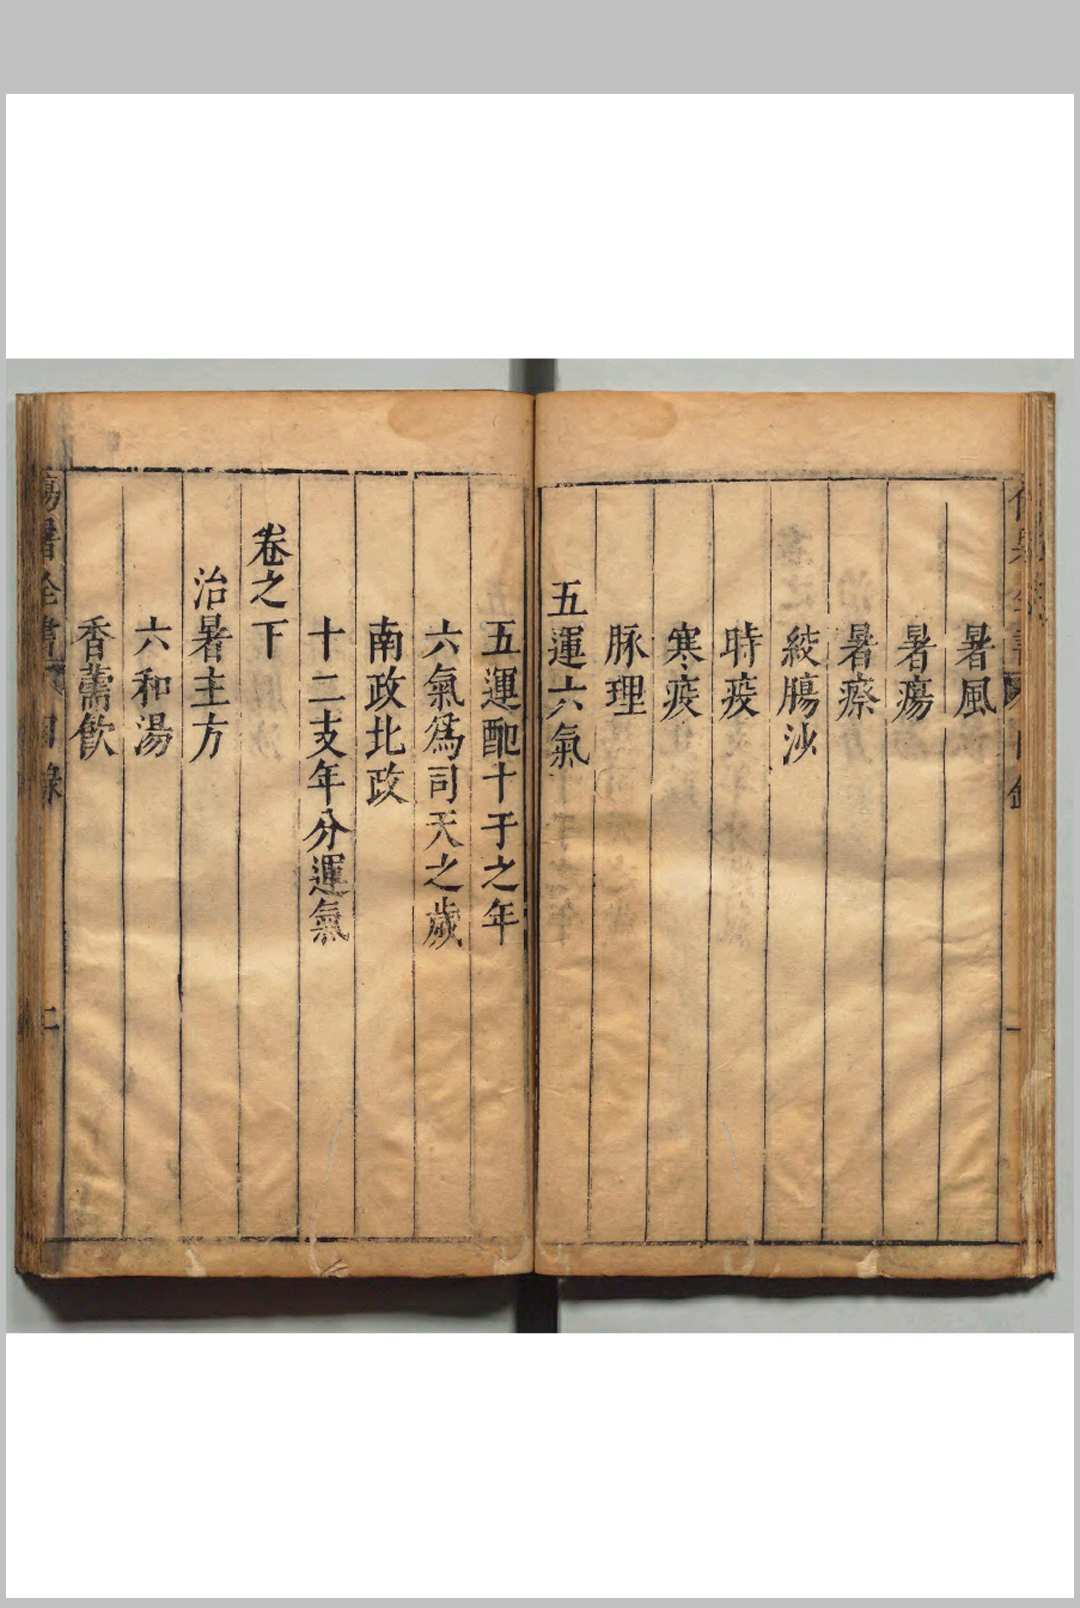 暑風
暑瘍
暑瘵
絞腸沙
時疫
寒疫
脉理
五運六氣
五運配十干之年
六氣為司天之歲
南政北政
十二支年分運氣
卷之下
治暑主方
六和湯
香薷飲
傷暑全書 目錄 二